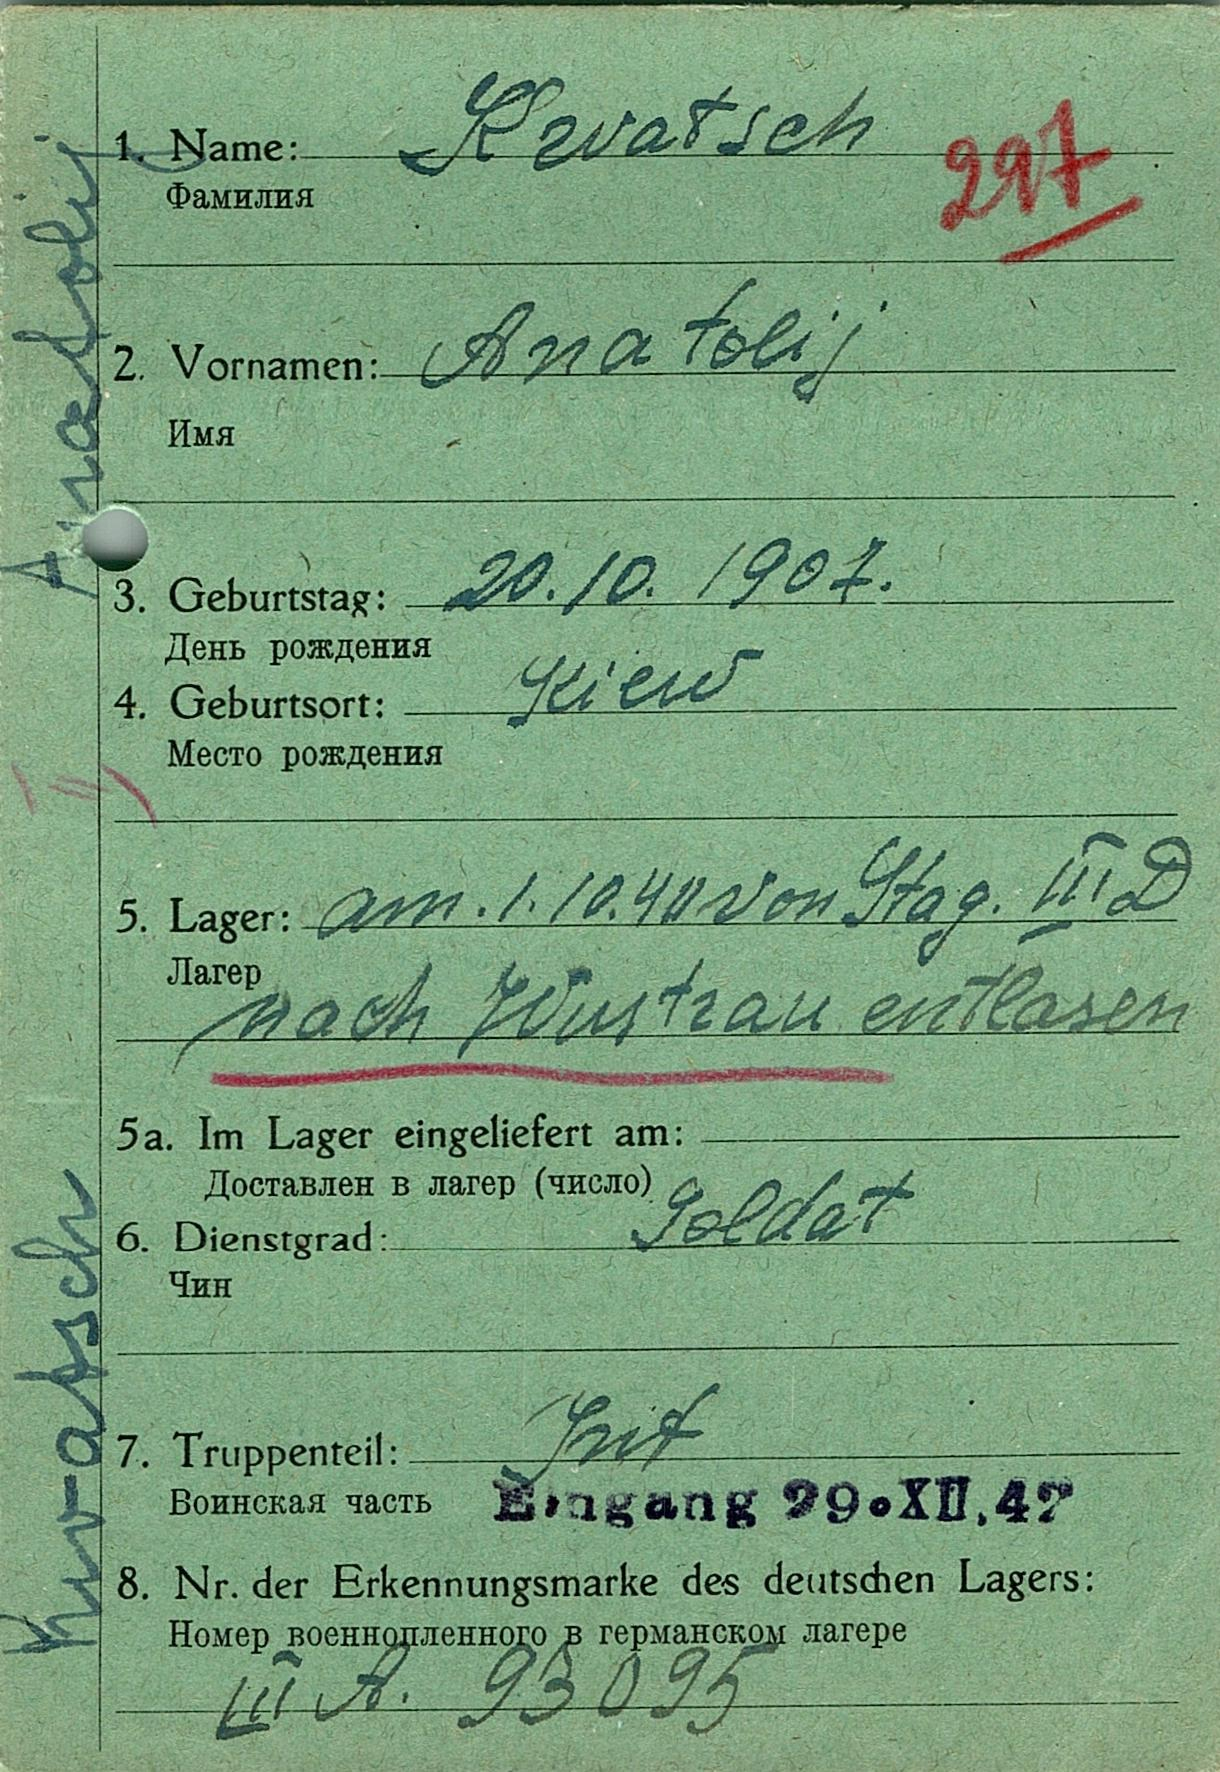 1. Name: Kwatsch
297
Фамилия
2. Vornamen: Anatolij
Имя
3. Geburtstag: 20.10.1907.
День рождения
4. Geburtsort: Kiew
Место рождения
5. Lager: am. 1.10.44 von Stag. III D
Лагер
nach Wustrau entlasen
5a. Im Lager eingeliefert am:
Доставлен в лагер (число)
6. Dienstgrad: Soldat
Чин
7. Truppenteil: Inf
Воинская часть
Eingang 29.XII.42
8. Nr. der Erkennungsmarke des deutschen Lagers:
Номер военнопленного в германском лагере
III A. 93095
Kwatsch Anatolij